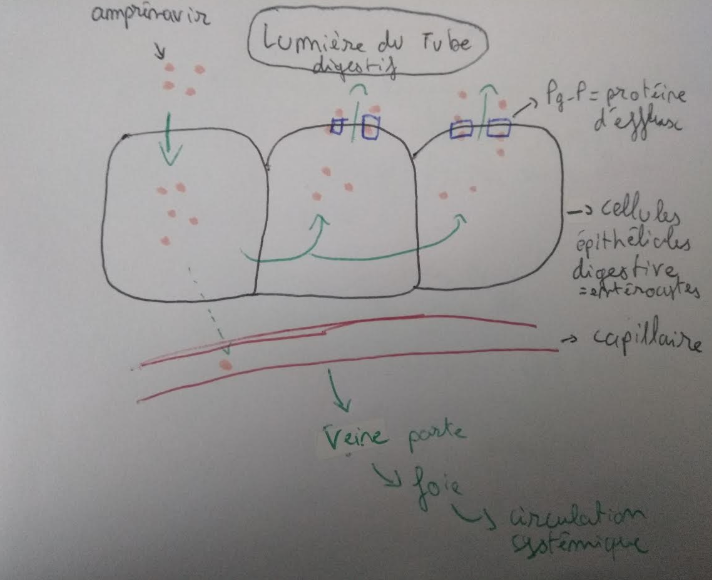 amprénavir
Lumière du Tube
digestif
Pg-P = protéine
d'efflux
cellules
épithéliales
digestive
= entérocytes
capillaire
Veine porte
foie
circulation
systémique